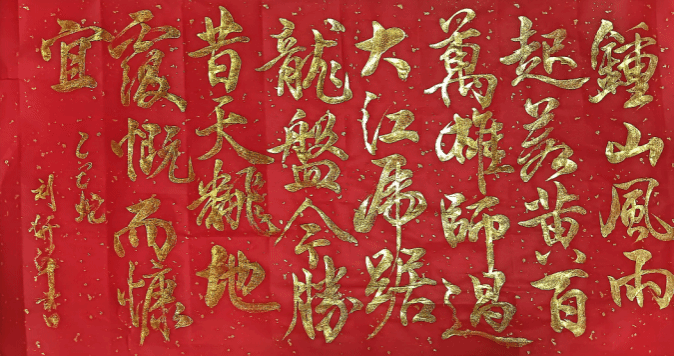 鍾山風雨
起蒼黃百
萬雄師過
大江虎踞
龍盤今勝
昔天飜地
覆慨而慷
宜
乙巳蛇
刘書